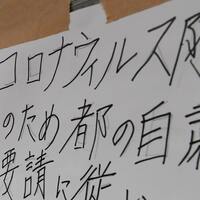 コロナウィルス感
のため都の自粛
要請に従